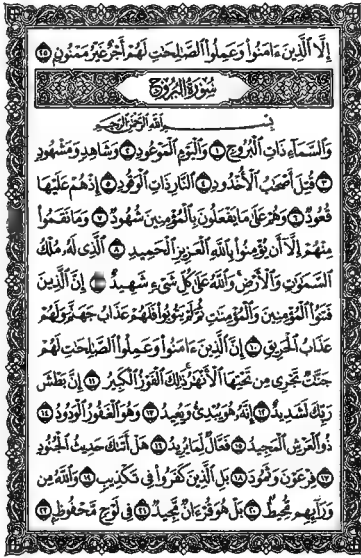 إِلَّا ٱلَّذِينَ ءَامَنُوا۟ وَعَمِلُوا۟ ٱلصَّـٰلِحَـٰتِ لَهُمْ أَجْرٌ غَيْرُ مَمْنُونٍۭ ٢٥
سُورَةُ ٱلْبُرُوجِ
بِسْمِ ٱللَّهِ ٱلرَّحْمَـٰنِ ٱلرَّحِيمِ
وَٱلسَّمَآءِ ذَاتِ ٱلْبُرُوجِ ١ وَٱلْيَوْمِ ٱلْمَوْعُودِ ٢ وَشَاهِدٍ وَمَشْهُودٍ
٣ قُتِلَ أَصْحَـٰبُ ٱلْأُخْدُودِ ٤ ٱلنَّارِ ذَاتِ ٱلْوَقُودِ ٥ إِذْ هُمْ عَلَيْهَا
قُعُودٌ ٦ وَهُمْ عَلَىٰ مَا يَفْعَلُونَ بِٱلْمُؤْمِنِينَ شُهُودٌ ٧ وَمَا نَقَمُوا۟
مِنْهُمْ إِلَّآ أَن يُؤْمِنُوا۟ بِٱللَّهِ ٱلْعَزِيزِ ٱلْحَمِيدِ ٨ ٱلَّذِى لَهُۥ مُلْكُ
ٱلسَّمَـٰوَٰتِ وَٱلْأَرْضِ وَٱللَّهُ عَلَىٰ كُلِّ شَىْءٍ شَهِيدٌ إِنَّ ٱلَّذِينَ
فَتَنُوا۟ ٱلْمُؤْمِنِينَ وَٱلْمُؤْمِنَـٰتِ ثُمَّ لَمْ يَتُوبُوا۟ فَلَهُمْ عَذَابُ جَهَنَّمَ وَلَهُمْ
عَذَابُ ٱلْحَرِيقِ ١٠ إِنَّ ٱلَّذِينَ ءَامَنُوا۟ وَعَمِلُوا۟ ٱلصَّـٰلِحَـٰتِ لَهُمْ
جَنَّـٰتٌ تَجْرِى مِن تَحْتِهَا ٱلْأَنْهَـٰرُ ذَٰلِكَ ٱلْفَوْزُ ٱلْكَبِيرُ ١١ إِنَّ بَطْشَ
رَبِّكَ لَشَدِيدٌ ١٢ إِنَّهُۥ هُوَ يُبْدِئُ وَيُعِيدُ ١٣ وَهُوَ ٱلْغَفُورُ ٱلْوَدُودُ ١٤
ذُو ٱلْعَرْشِ ٱلْمَجِيدُ ١٥ فَعَّالٌ لِّمَا يُرِيدُ ١٦ هَلْ أَتَىٰكَ حَدِيثُ ٱلْجُنُودِ
١٧ فِرْعَوْنَ وَثَمُودَ ١٨ بَلِ ٱلَّذِينَ كَفَرُوا۟ فِى تَكْذِيبٍ ١٩ وَٱللَّهُ مِن
وَرَآئِهِم مُّحِيطٌۢ ٢٠ بَلْ هُوَ قُرْءَانٌ مَّجِيدٌ ٢١ فِى لَوْحٍ مَّحْفُوظٍۭ ٢٢